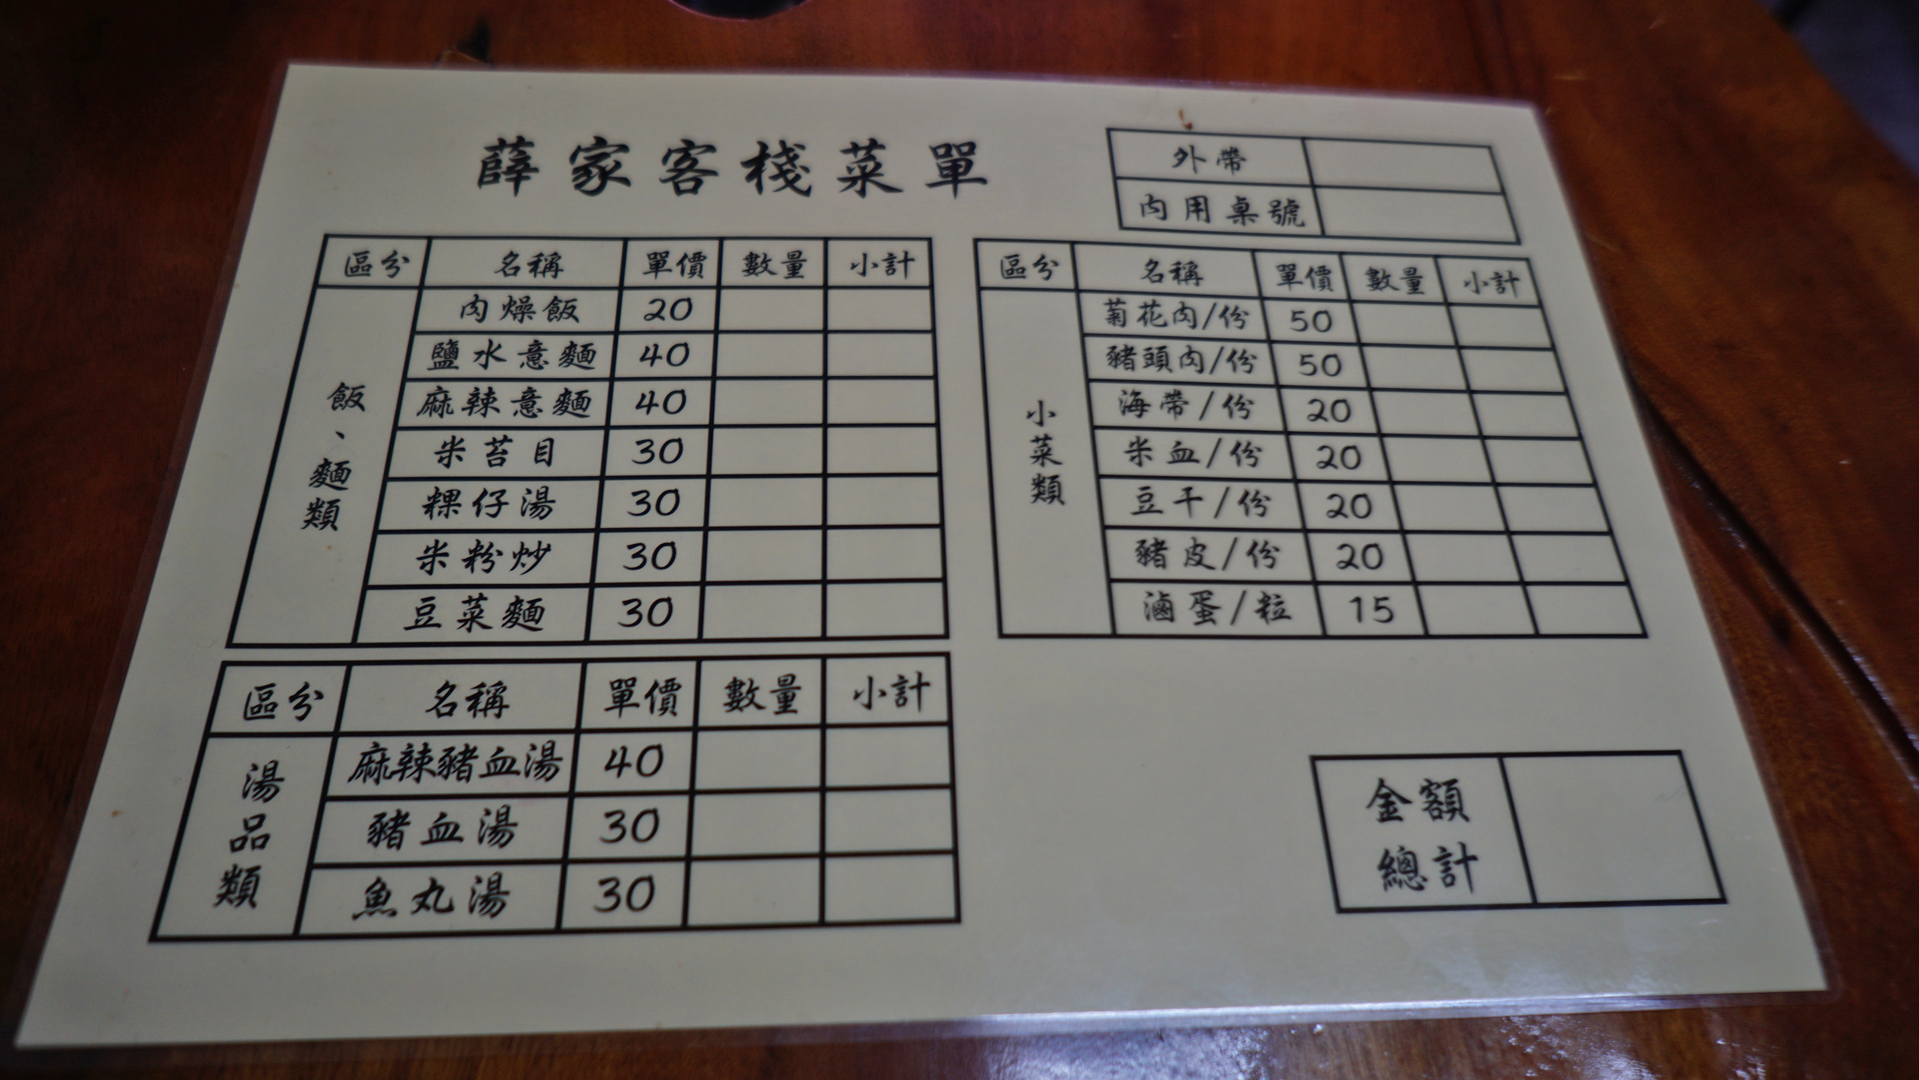 薛家客棧菜單
外帶
內用桌號
區分 名稱 單價 數量 小計
飯、麵類
肉燥飯 20
鹽水意麵 40
麻辣意麵 40
米苔目 30
粿仔湯 30
米粉炒 30
豆菜麵 30
區分 名稱 單價 數量 小計
小菜類
菊花肉/份 50
豬頭肉/份 50
海帶/份 20
米血/份 20
豆干/份 20
豬皮/份 20
滷蛋/粒 15
區分 名稱 單價 數量 小計
湯品類
麻辣豬血湯 40
豬血湯 30
魚丸湯 30
金額
總計